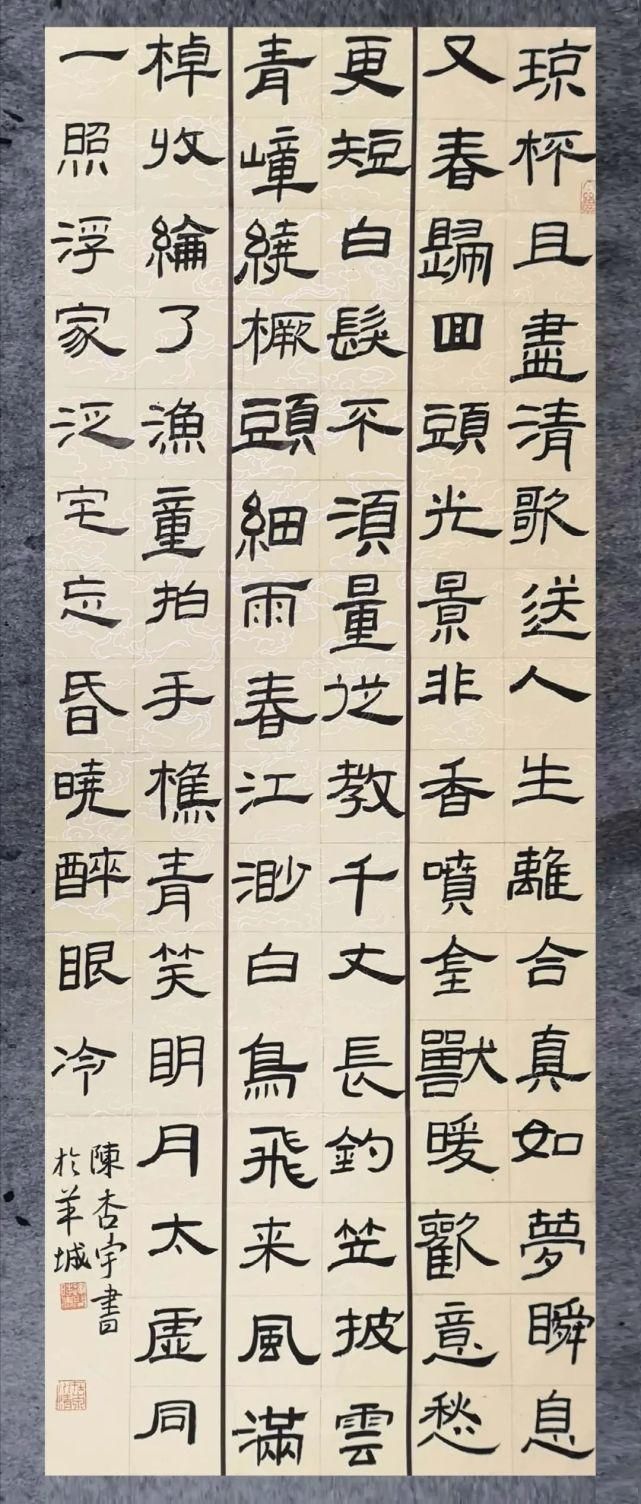 琼杯且盡清歌送人生離合真如夢瞬息
又春歸回頭光景非香噴金獸暖歡意愁
更短白髮不須量從教千丈長釣笠披雲
青嶂繞橛頭細雨春江渺白鳥飛来風滿
棹收綸了漁童拍手樵青笑明月太虛同
一照浮家泛宅忘昏曉醉眼冷
陳杏宇書
於羊城